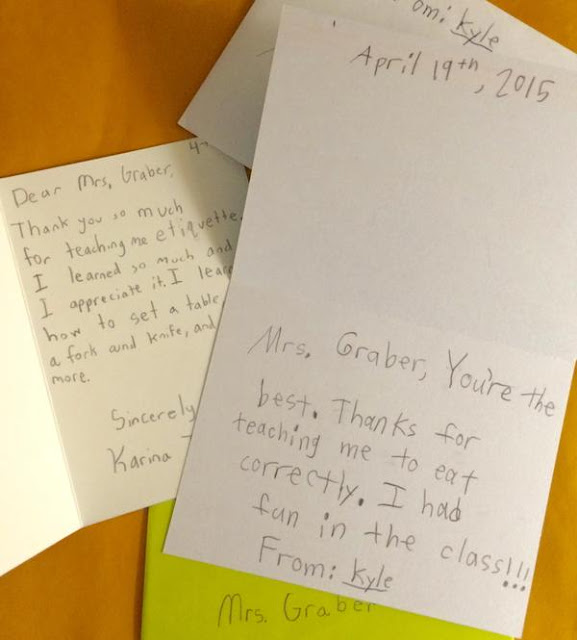 om: Kyle
April 19th, 2015
Mrs. Graber, You're the
best. Thanks for
teaching me to eat
correctly. I had
fun in the class!!!
From: Kyle
4-
Dear Mrs. Graber,
Thank you so much
for teaching me etiquette.
I learned so much and
I appreciate it. I lear
how to set a table
a fork and knife, and
more.
Sincerely
Karina
Mrs. Graber